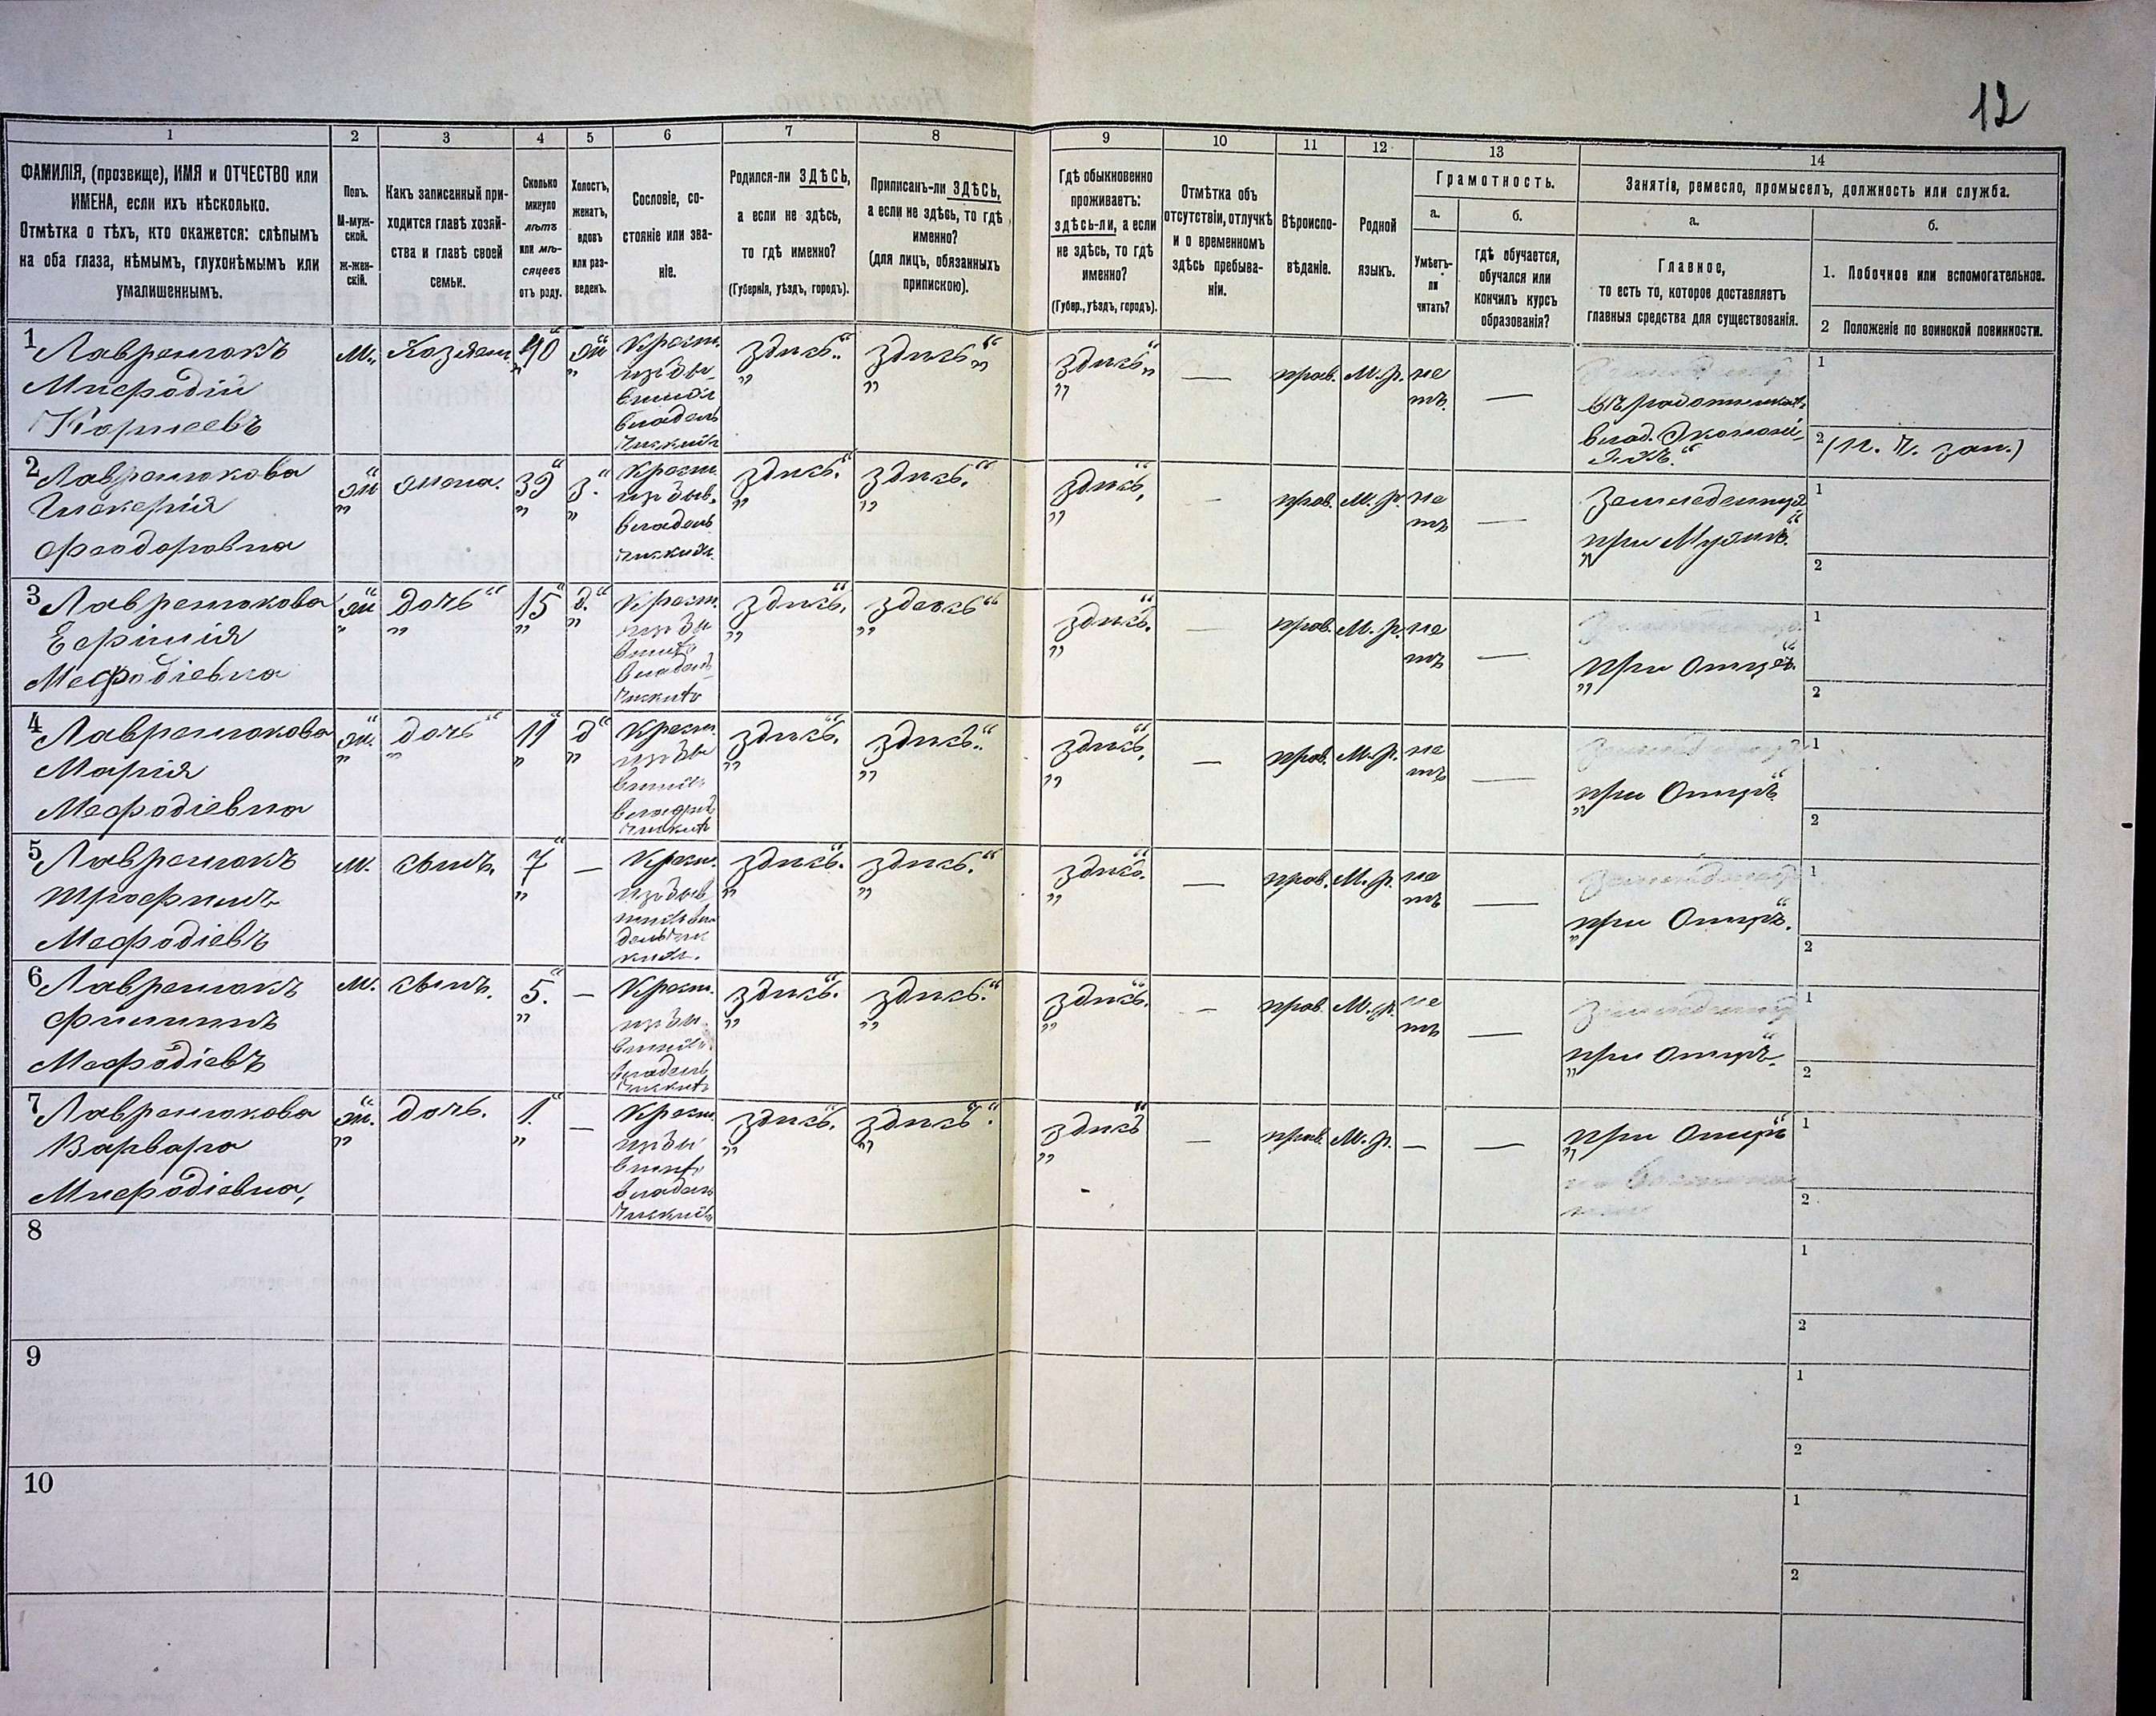 12
1
2
3
4
5
6
7
8
9
10
11
12
13
14
ФАМИЛІЯ, (прозвище), ИМЯ и ОТЧЕСТВО или
ИМЕНА, если ихъ нѣсколько.
Отмѣтка о тѣхъ, кто окажется: слѣпымъ
на оба глаза, нѣмымъ, глухонѣмымъ или
умалишеннымъ.
Полъ.
М-муж-
ской.
Ж-жен-
скій.
Какъ записанный при-
ходится главѣ хозяй-
ства и главѣ своей
семьи.
Сколько
минуло
лѣтъ
или мѣ-
сяцевъ
отъ роду.
Холостъ,
женатъ,
вдовъ
или раз-
веденъ.
Сословіе, со-
стояніе или зва-
ніе.
Родился-ли ЗДѢСЬ,
а если не здѣсь,
то гдѣ именно?
(Губернія, уѣздъ, городъ).
Приписанъ-ли ЗДѢСЬ,
а если не здѣсь, то гдѣ
именно?
(для лицъ, обязанныхъ
припискою).
Гдѣ обыкновенно
проживаетъ:
здѣсь-ли, а если
не здѣсь, то гдѣ
именно?
(Губер., уѣздъ, городъ).
Отмѣтка объ
отсутствіи, отлучкѣ
и о временномъ
здѣсь пребыва-
ніи.
Вѣроиспо-
вѣданіе.
Родной
языкъ.
Грамотность.
а.
Умѣетъ-
ли
читать?
б.
гдѣ обучается,
обучался или
кончилъ курсъ
образованія?
Занятіе, ремесло, промыселъ, должность или служба.
а.
Главное,
то есть то, которое доставляетъ
главныя средства для существованія.
б.
1. Побочное или вспомогательное.
2 Положеніе по воинской повинности.
1 Лавренюкъ
Мнефодій
Корнеевъ
м.
Хозяин
40
ж
Крест.
владель
здѣсь
здѣсь
здѣсь
—
прав.
М. р.
не
тъ.
—
влад. Экономі
1
2
2 Лавренюкова
Гликерія
Феодоровна
ж
жена.
39
з.
Крест.
владель
здѣсь
здѣсь.
здѣсь.
—
прав.
М. р.
не
тъ
—
Земледелица
при Мужѣ.
1
2
3 Лавренюкова
Ефимія
Мефодіевна
ж
дочь
15
д.
Крест.
владель
здѣсь.
здесь
здѣсь.
—
прав.
М. р.
не
тъ
—
при Отцѣ.
1
2
4 Лавренюкова
Марія
Мефодіевна
ж.
дочь
11
д
Крест.
здѣсь.
здѣсь.
здѣсь.
—
прав.
М. р.
не
тъ
—
при Отцѣ.
1
2
5 Лавренюкъ
Трофимъ
Мефодіевъ
м.
сынъ.
7
—
Крест.
здѣсь.
здѣсь.
здѣсь.
—
прав.
М. р.
не
тъ
—
при Отцѣ.
1
2
6 Лавренюкъ
Филиппъ
Мефодіевъ
м.
сынъ.
5.
—
Крест.
владель
здѣсь.
здѣсь.
здѣсь.
—
прав.
М. р.
не
тъ
—
при Отцѣ.
1
2
7 Лавренюкова
Варвара
Мнефодіевна,
ж.
дочь.
1.
—
Крест.
владель
здѣсь.
здѣсь.
здѣсь
—
прав.
М. р.
—
—
при Отцѣ
1
2
8
1
2
9
1
2
10
1
2